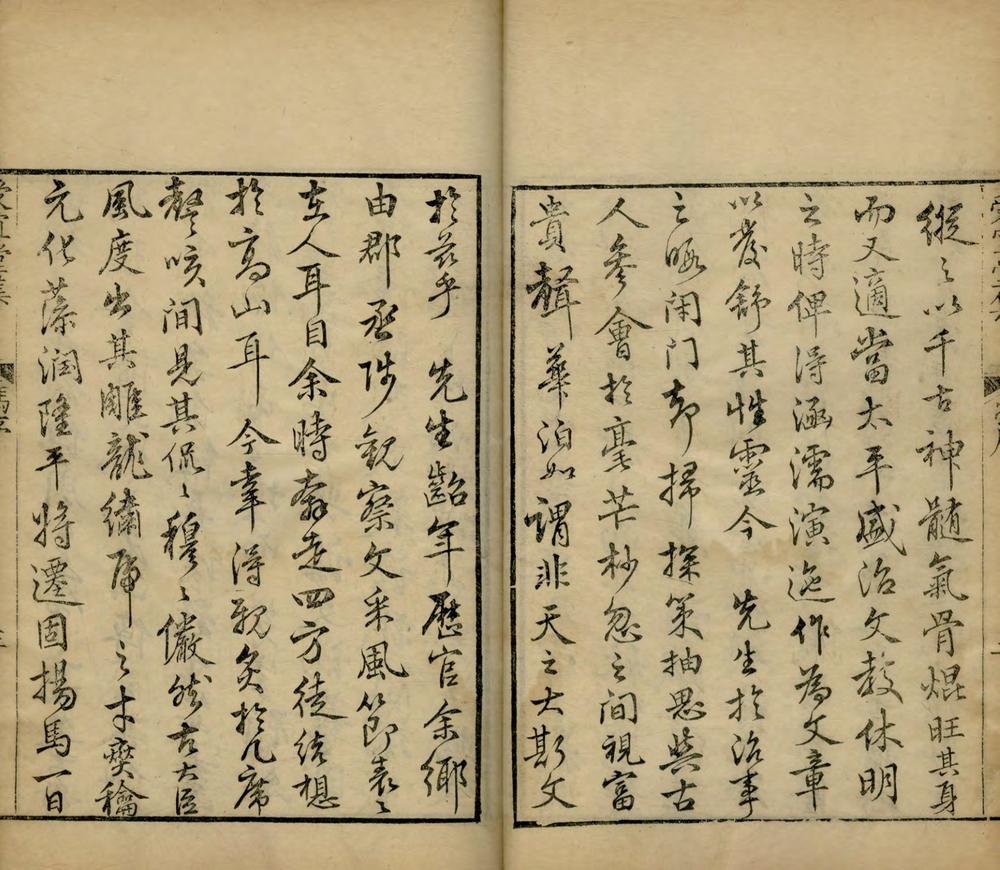 縱之以千古神髓氣骨焜旺其身
而又適當太平盛治文教休明
之時俾得涵濡演迤作為文章
以發舒其性靈今 先生於治事
之暇閉門却掃探策抽思與古
人參會於毫芒杪忽之間視富
貴聲華泊如謂非天之大斯文
於茲乎 先生齠年歷官余鄉
由郡丞陟觀察文采風節表〻
在人耳目余時奔走四方徒結想
於高山耳今幸得親炙於几席
謦咳間見其侃〻穆〻儼然古大臣
風度出其雕龍繡虎之才爕龢
元化藻潤隆平將遷固揚馬一日